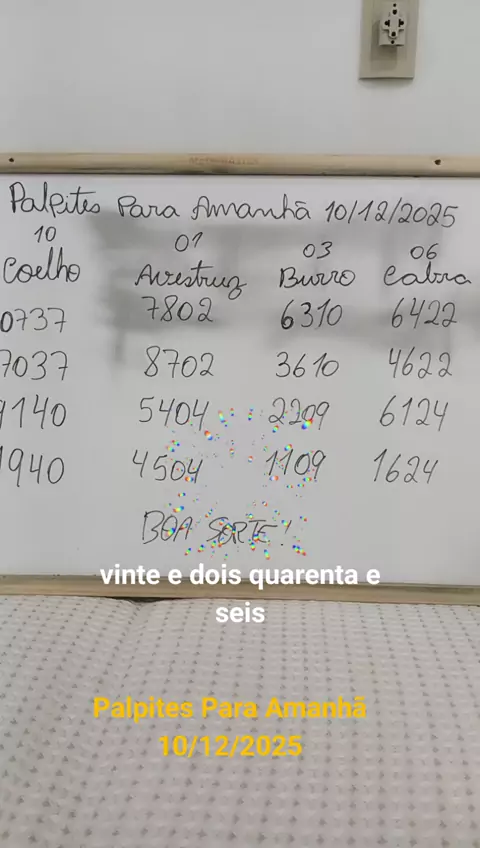 Palpites Para Amanhã 10/12/2025
10 01 03 06
Coelho Avestruz Burro Cabra
0737 7802 6310 6422
7037 8702 3610 4622
9140 5404 2209 6124
1940 4504 1109 1624
BOA SORTE!
vinte e dois quarenta e
seis
Palpites Para Amanhã
10/12/2025